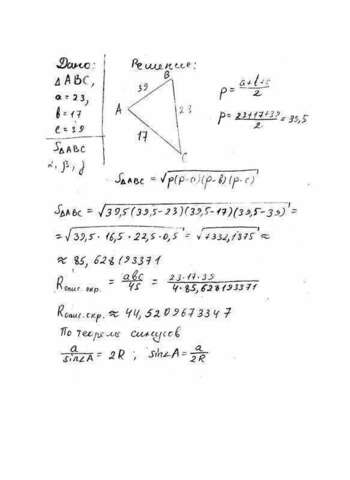 Дано:
△ABC,
a = 23,
b = 17
c = 39
S△ABC
α, β, γ
Решение:
B
39
A
23
17
C
p = (a+b+c)/2
p = (23+17+39)/2 = 39,5
S△ABC = √p(p-a)(p-b)(p-c)
S△ABC = √39,5(39,5-23)(39,5-17)(39,5-39) =
= √39,5 · 16,5 · 22,5 · 0,5 = √7332,1875 ≈
≈ 85,628193371
Rопис.окр. = abc/4S = 23·17·39/4·85,628193371
Rопис.окр. ≈ 44,5209673347
По теореме синусов
a/sin∠A = 2R ; sin∠A = a/2R